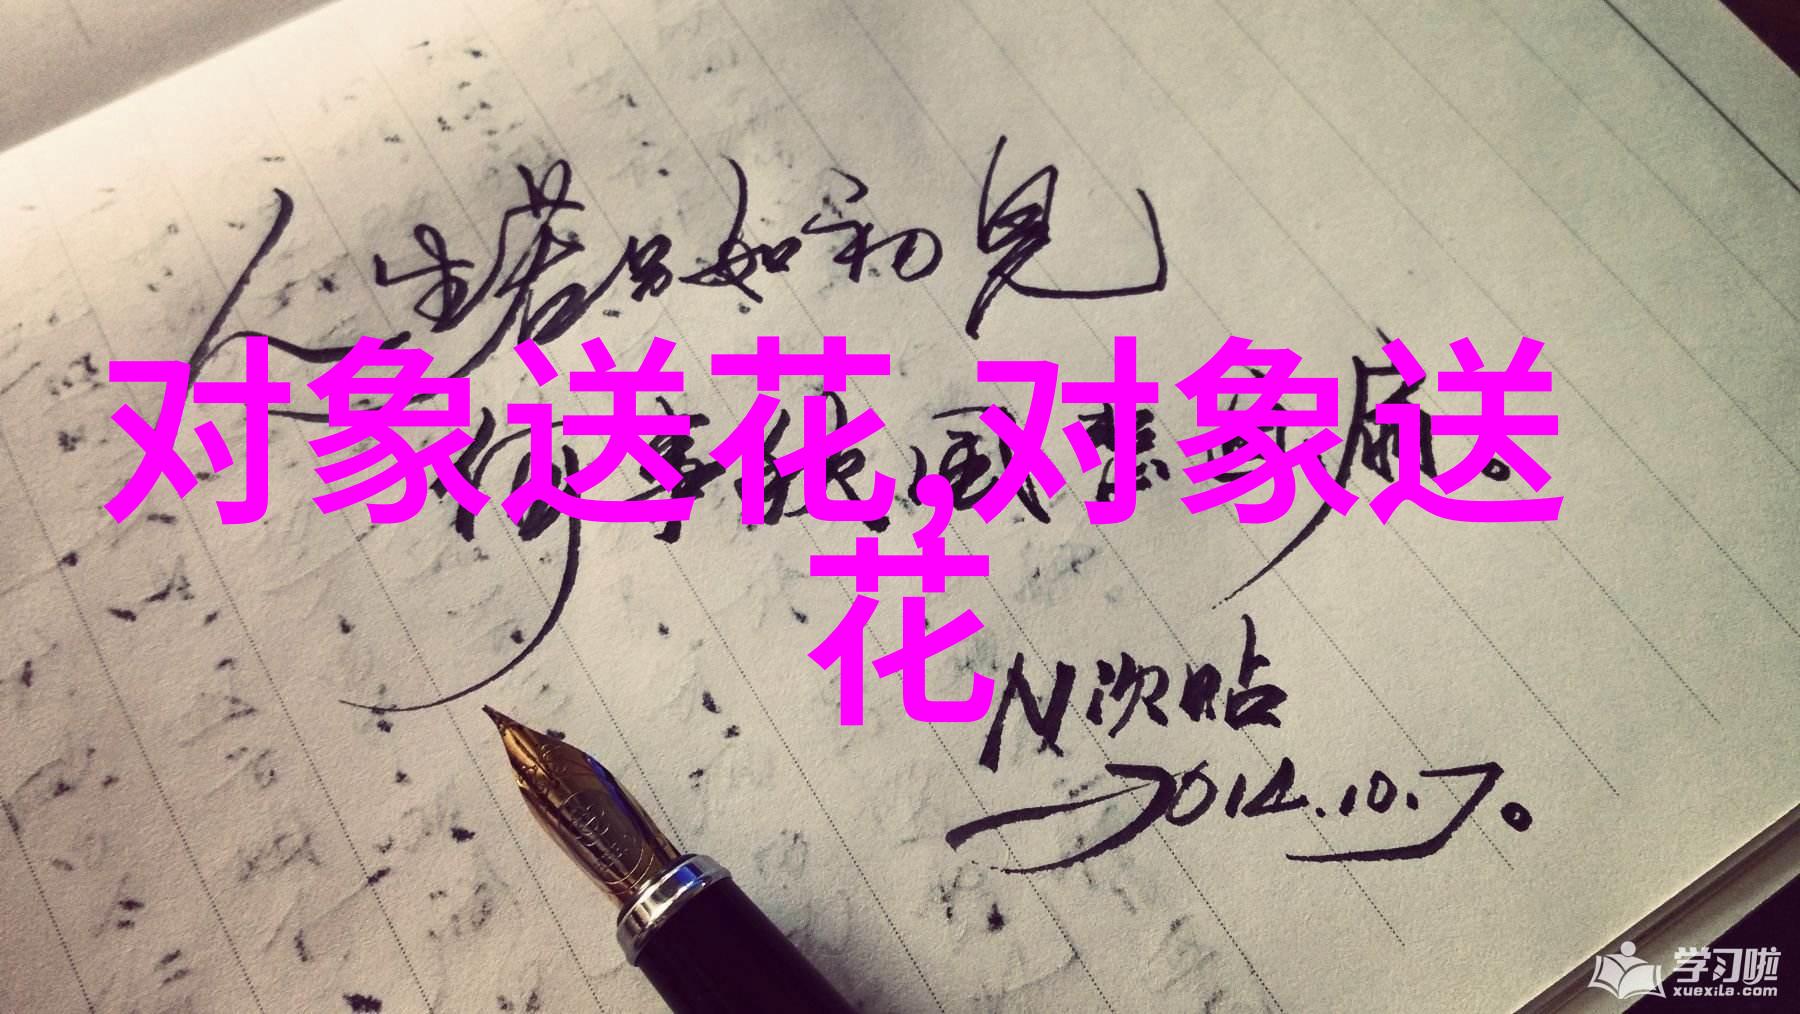 人生若只如初见
对象送花,对象送
何事秋风悲画扇。
花
N次贴
2014.10.7。
学习啦
xuexila.com